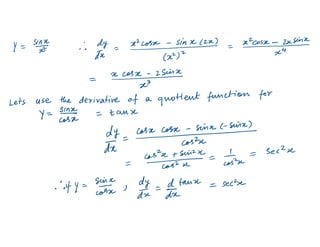 y = sinx/x² ∴ dy/dx = x² cosx - sin x (2x)/(x²)² = x² cosx - 2x sinx/x⁴
= x cosx - 2 sinx/x³
Lets use the derivative of a quotient function for
y = sinx/cosx = tanx
dy/dx = cosx cosx - sinx (-sinx)/cos²x
= cos²x + sin²x/cos²x = 1/cos²x = sec²x
∴ if y = sinx/cosx, dy/dx = d/dx tanx = sec²x